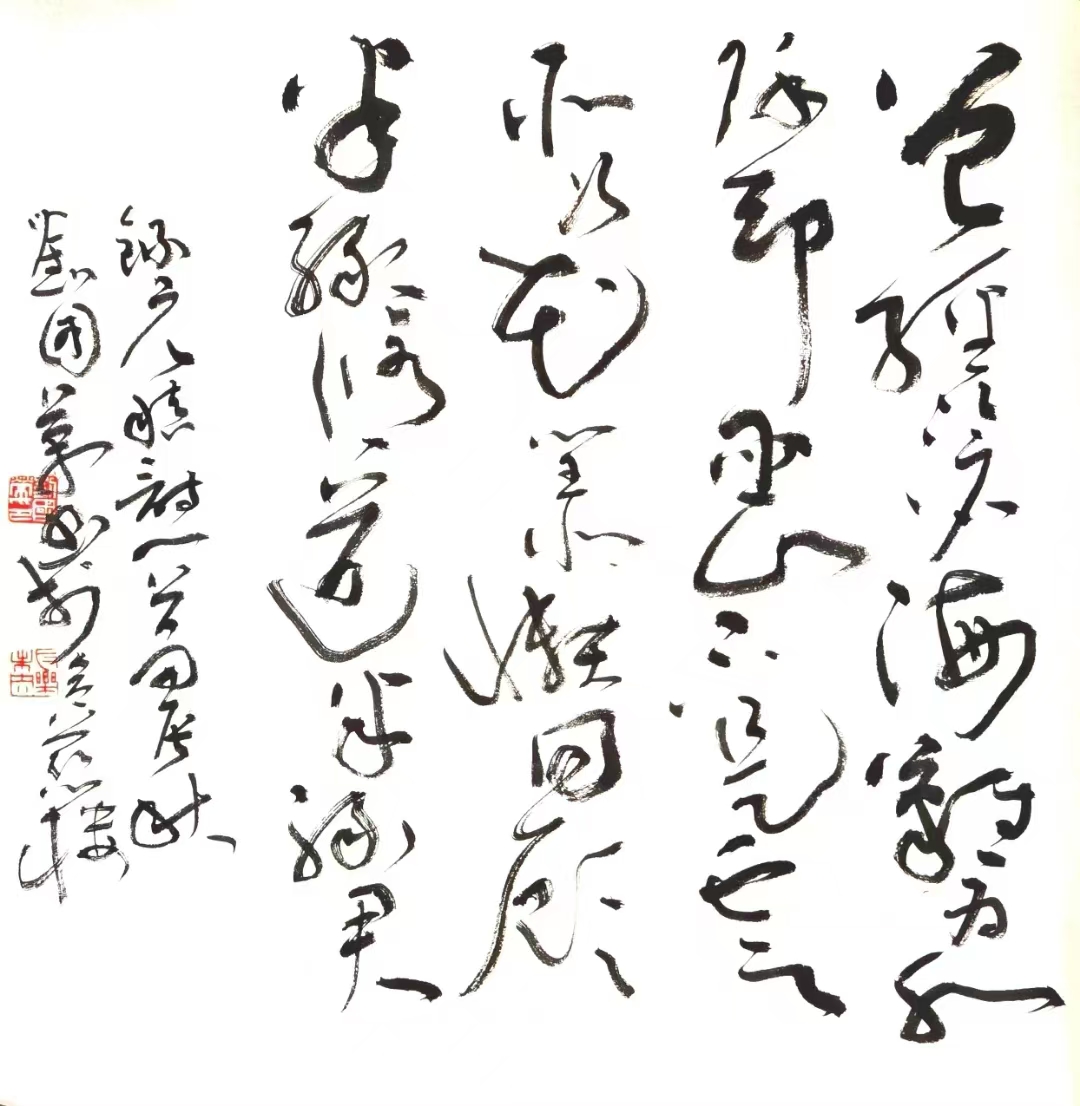 曾經滄海難為水
除却巫山不是雲
取次花叢懶回顧
半緣修道半緣君
錄元稹詩一首秋
劉國華書於樓